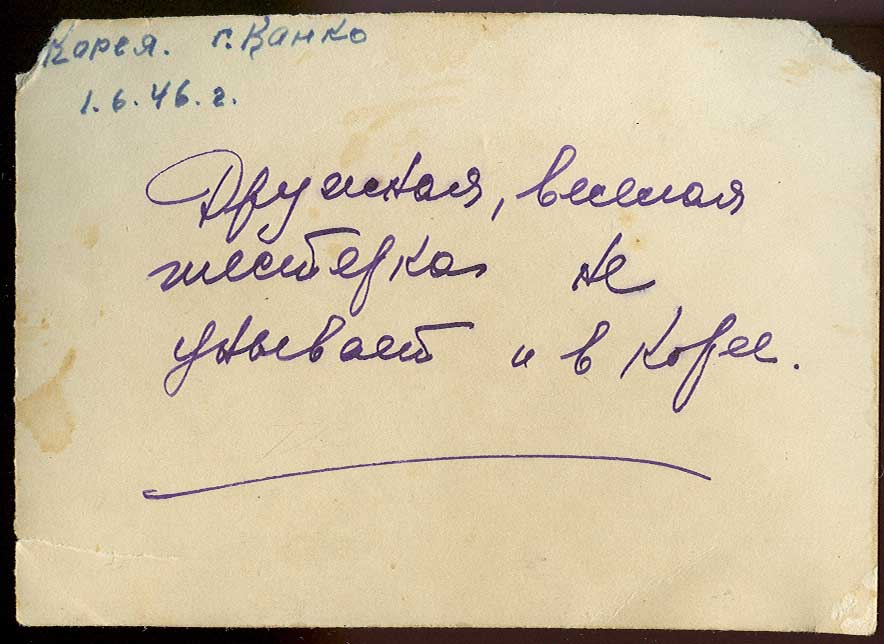 Корея. г. Канко
1.6.46.г.
Дружная, веселая
шестерка не
унывает и в Корее.